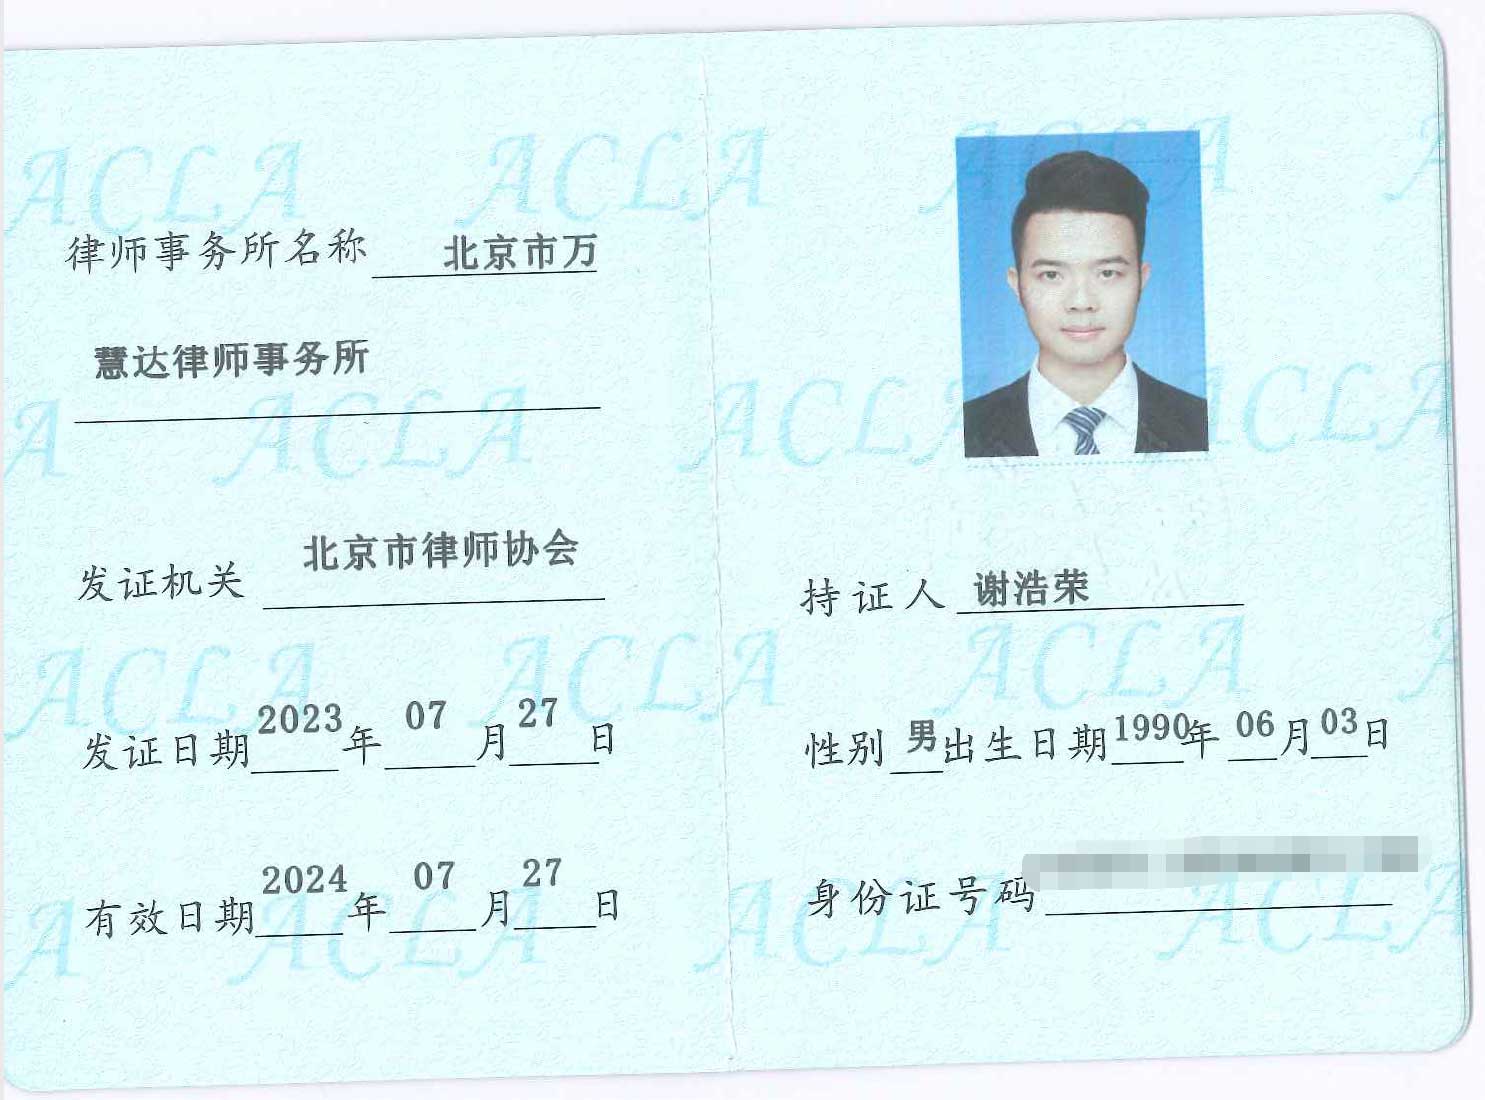 律师事务所名称 北京市万
慧达律师事务所
发证机关 北京市律师协会
发证日期 2023 年 07 月 27 日
有效日期 2024 年 07 月 27 日
持证人 谢浩荣
性别 男 出生日期 1990 年 06 月 03 日
身份证号码
ACLA